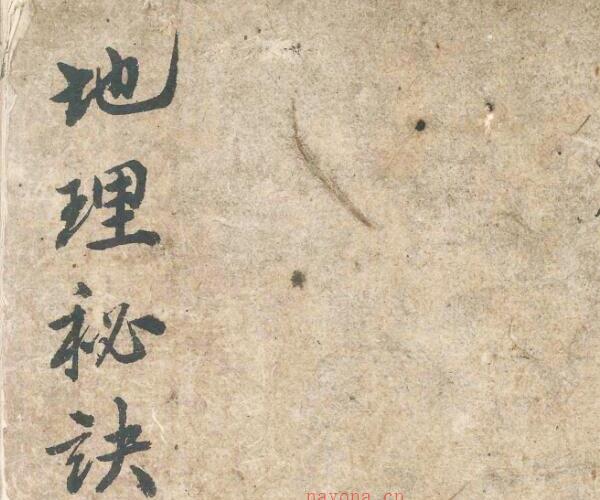 地理秘訣
nayona.cn